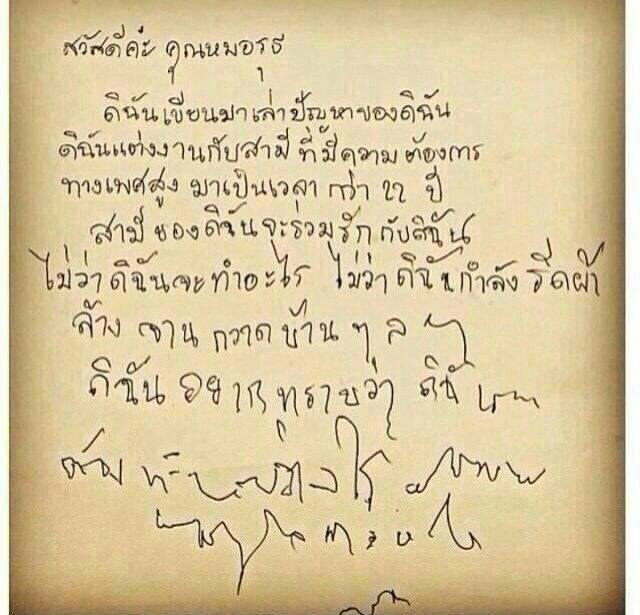 สวัสดีค่ะ คุณหมอรุธ
ดิฉันเขียนมาเล่าปัญหาของดิฉัน
ดิฉันแต่งงานกับสามี ที่มีความต้องการ
ทางเพศสูง มาเป็นเวลา กว่า 22 ปี
สามีของดิฉันจะร่วมรัก กับดิฉัน
ไม่ว่าดิฉันจะทำอะไร ไม่ว่าดิฉันกำลัง รีดผ้า
ล้าง จาน กวาดบ้าน ฯลฯ
ดิฉัน อยากทราบว่า ดิฉัน
ต้อง ทำอย่างไร